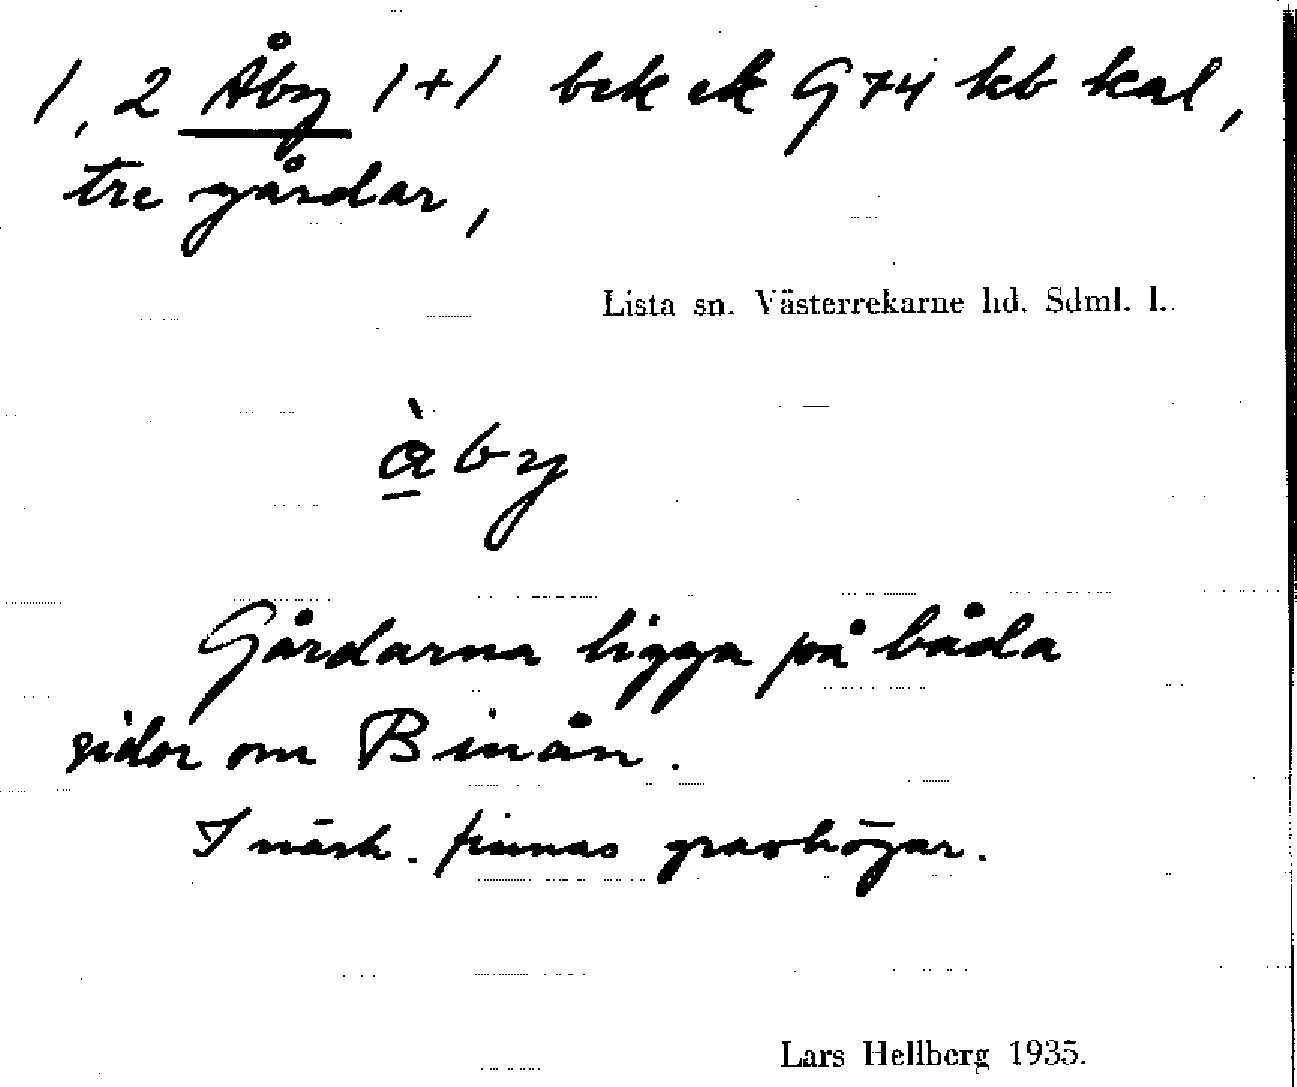 1, 2 Åby 1+1 bek ek G 74 kb kal,
tre gårdar,
Lista sn. Västerrekarne hd. Sdml. l.
àby
Gårdarna ligga på båda
sidor om Binån.
I närh. finnas gravhögar.
Lars Hellberg 1935.